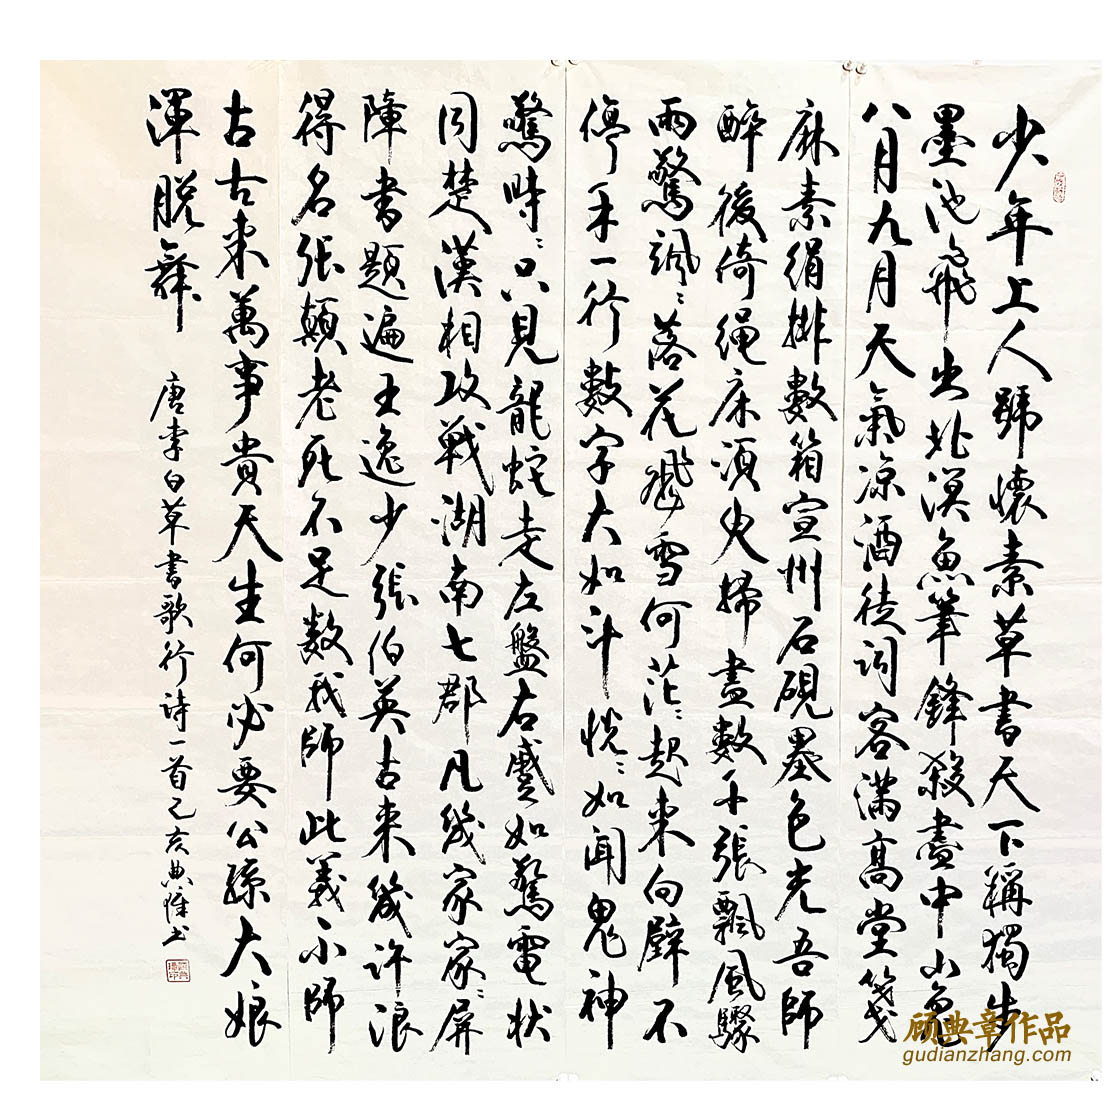 少年上人號懷素草書天下稱獨步
墨池飛出北溟魚筆鋒殺盡中山兔
八月九月天氣凉酒徒詞客滿高堂箋
麻素絹排數箱宣州石硯墨色光吾師
醉後倚繩床須臾掃盡數千張飄風驟
雨驚颯〻落花飛雪何茫〻起來向壁不
停手一行數字大如斗恍〻如聞鬼神
驚時〻只見龍蛇走左盤右蹙如驚電狀
同楚漢相攻戰湖南七郡凡幾家家〻屏
障書題遍王逸少張伯英古來幾許浪
得名張顛老死不足數我師此義不師
古古來萬事貴天生何必要公孫大娘
渾脫舞 唐李白草書歌行詩一首己亥典书
顾典章作品
gudianzhang.com